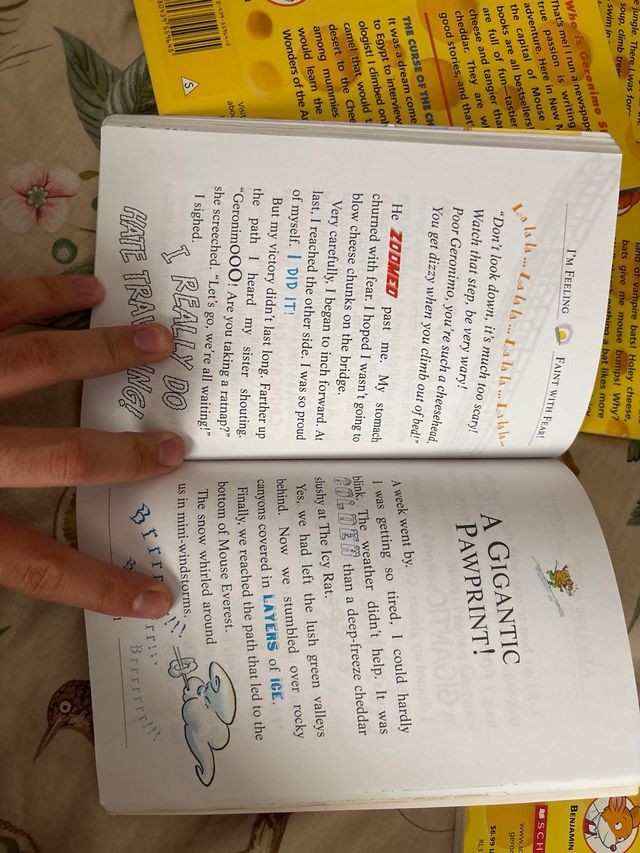 I'M FEELING FAINT WITH FEAR!
La la la ... La la la ... La la la ... La la la.
"Don't look down, it's much too scary!
Watch that step, be very wary!
Poor Geronimo, you're such a cheesehead,
You get dizzy when you climb out of bed!"
He ZOOMED past me. My stomach
churned with fear. I hoped I wasn't going to
blow cheese chunks on the bridge.
Very carefully, I began to inch forward. At
last, I reached the other side. I was so proud
of myself. I DID IT!
But my victory didn't last long. Farther up
the path I heard my sister shouting.
"GeronimOOO! Are you taking a ratnap?"
she screeched. "Let's go, we're all waiting!"
I sighed.
I REALLY DO
HATE
A GIGANTIC
PAWPRINT!
A week went by.
I was getting so tired, I could hardly
blink. The weather didn't help. It was
COLDER than a deep-freeze cheddar
slushy at The Icy Rat.
Yes, we had left the lush green valleys
behind. Now we stumbled over rocky
canyons covered in LAYERS of ICE.
Finally, we reached the path that led to the
bottom of Mouse Everest.
The snow whirled around
us in mini-windstorms.
Brrrrrrr!!!
Who is Geronimo
That's me! I run a newspaper
true passion is writing
adventure. Here in New
the capital of Mouse
books are all bestsellers
are full of fun, tastier
cheese and tangier than
cheddar. They are
good stories, and that's
THE CURSE OF THE
It was a dream come
to Egypt to interview
ologist! I climbed onto
camel that would
desert to the
among mummies
would learn the
Wonders of the
land of vampire bats! Holey cheese,
bats give me mouse bumps! Why?
a bat likes more
BENJAMIN
SCH
$6.99